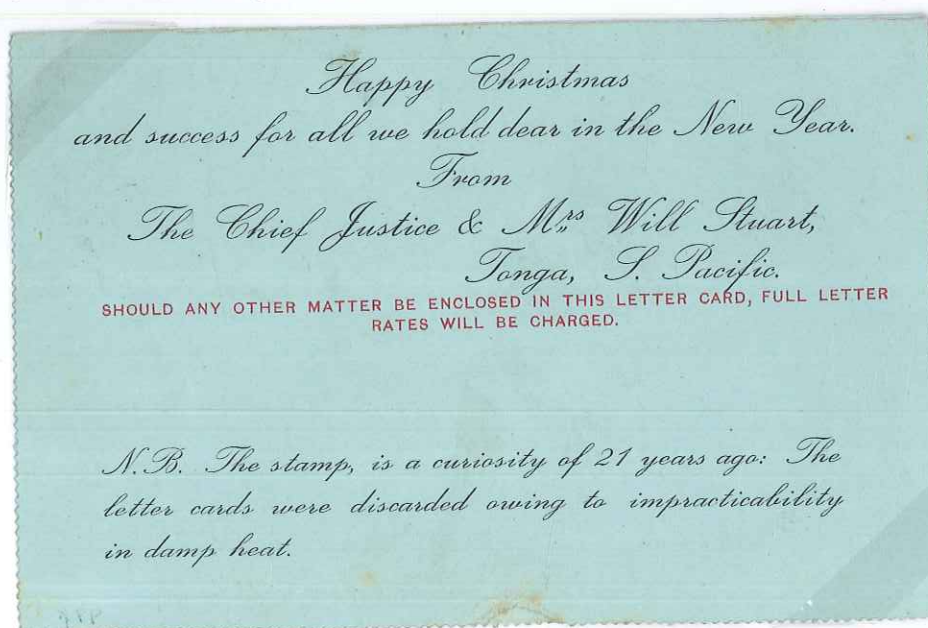 Happy Christmas
and success for all we hold dear in the New Year.
From
The Chief Justice & Mrs Will Stuart,
Tonga, S. Pacific.
SHOULD ANY OTHER MATTER BE ENCLOSED IN THIS LETTER CARD, FULL LETTER
RATES WILL BE CHARGED.
N.B. The stamp, is a curiosity of 21 years ago: The
letter cards were discarded owing to impracticability
in damp heat.